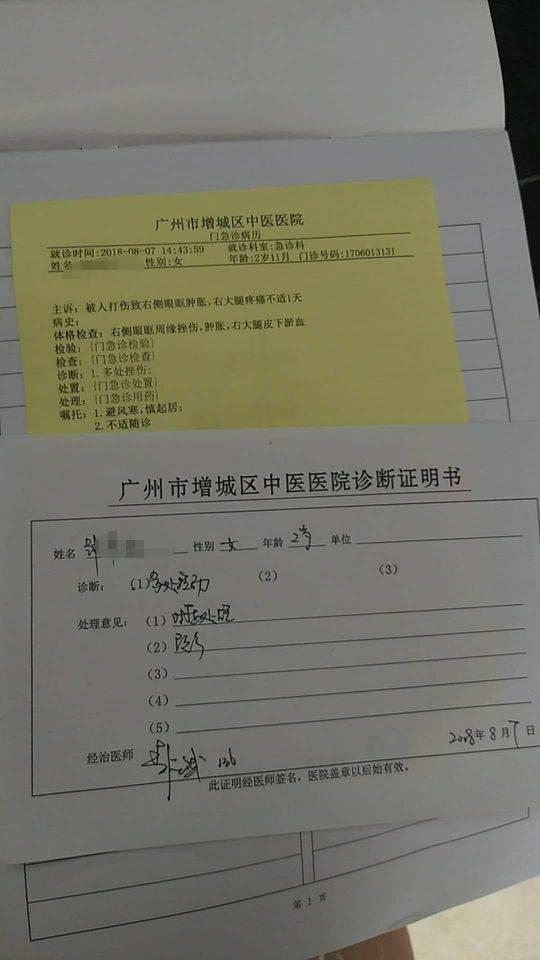 广州市增城区中医医院
门急诊病历
就诊时间:2018-08-07 14:43:59 就诊科室:急诊科
姓名 性别:女 年龄:2岁11月 门诊号码:1706013131
主诉: 被人打伤致右侧眼眶肿胀,右大腿疼痛不适1天
病史:
体格检查: 右侧眼眶周缘挫伤,肿胀,右大腿皮下淤血
检验: [门急诊检验]
检查: [门急诊检查]
诊断: 1.多处挫伤;
处置: [门急诊处置]
处理: [门急诊用药]
嘱托: 1.避风寒,慎起居;
2.不适随诊
广州市增城区中医医院诊断证明书
姓名 性别 女 年龄 2岁 单位
诊断: (1) 多处挫伤 (2) (3)
处理意见: (1)
(2)
(3)
(4)
(5)
经治医师 2018年8月7日
此证明经医师签名,医院盖章以后始有效。
第 1 页